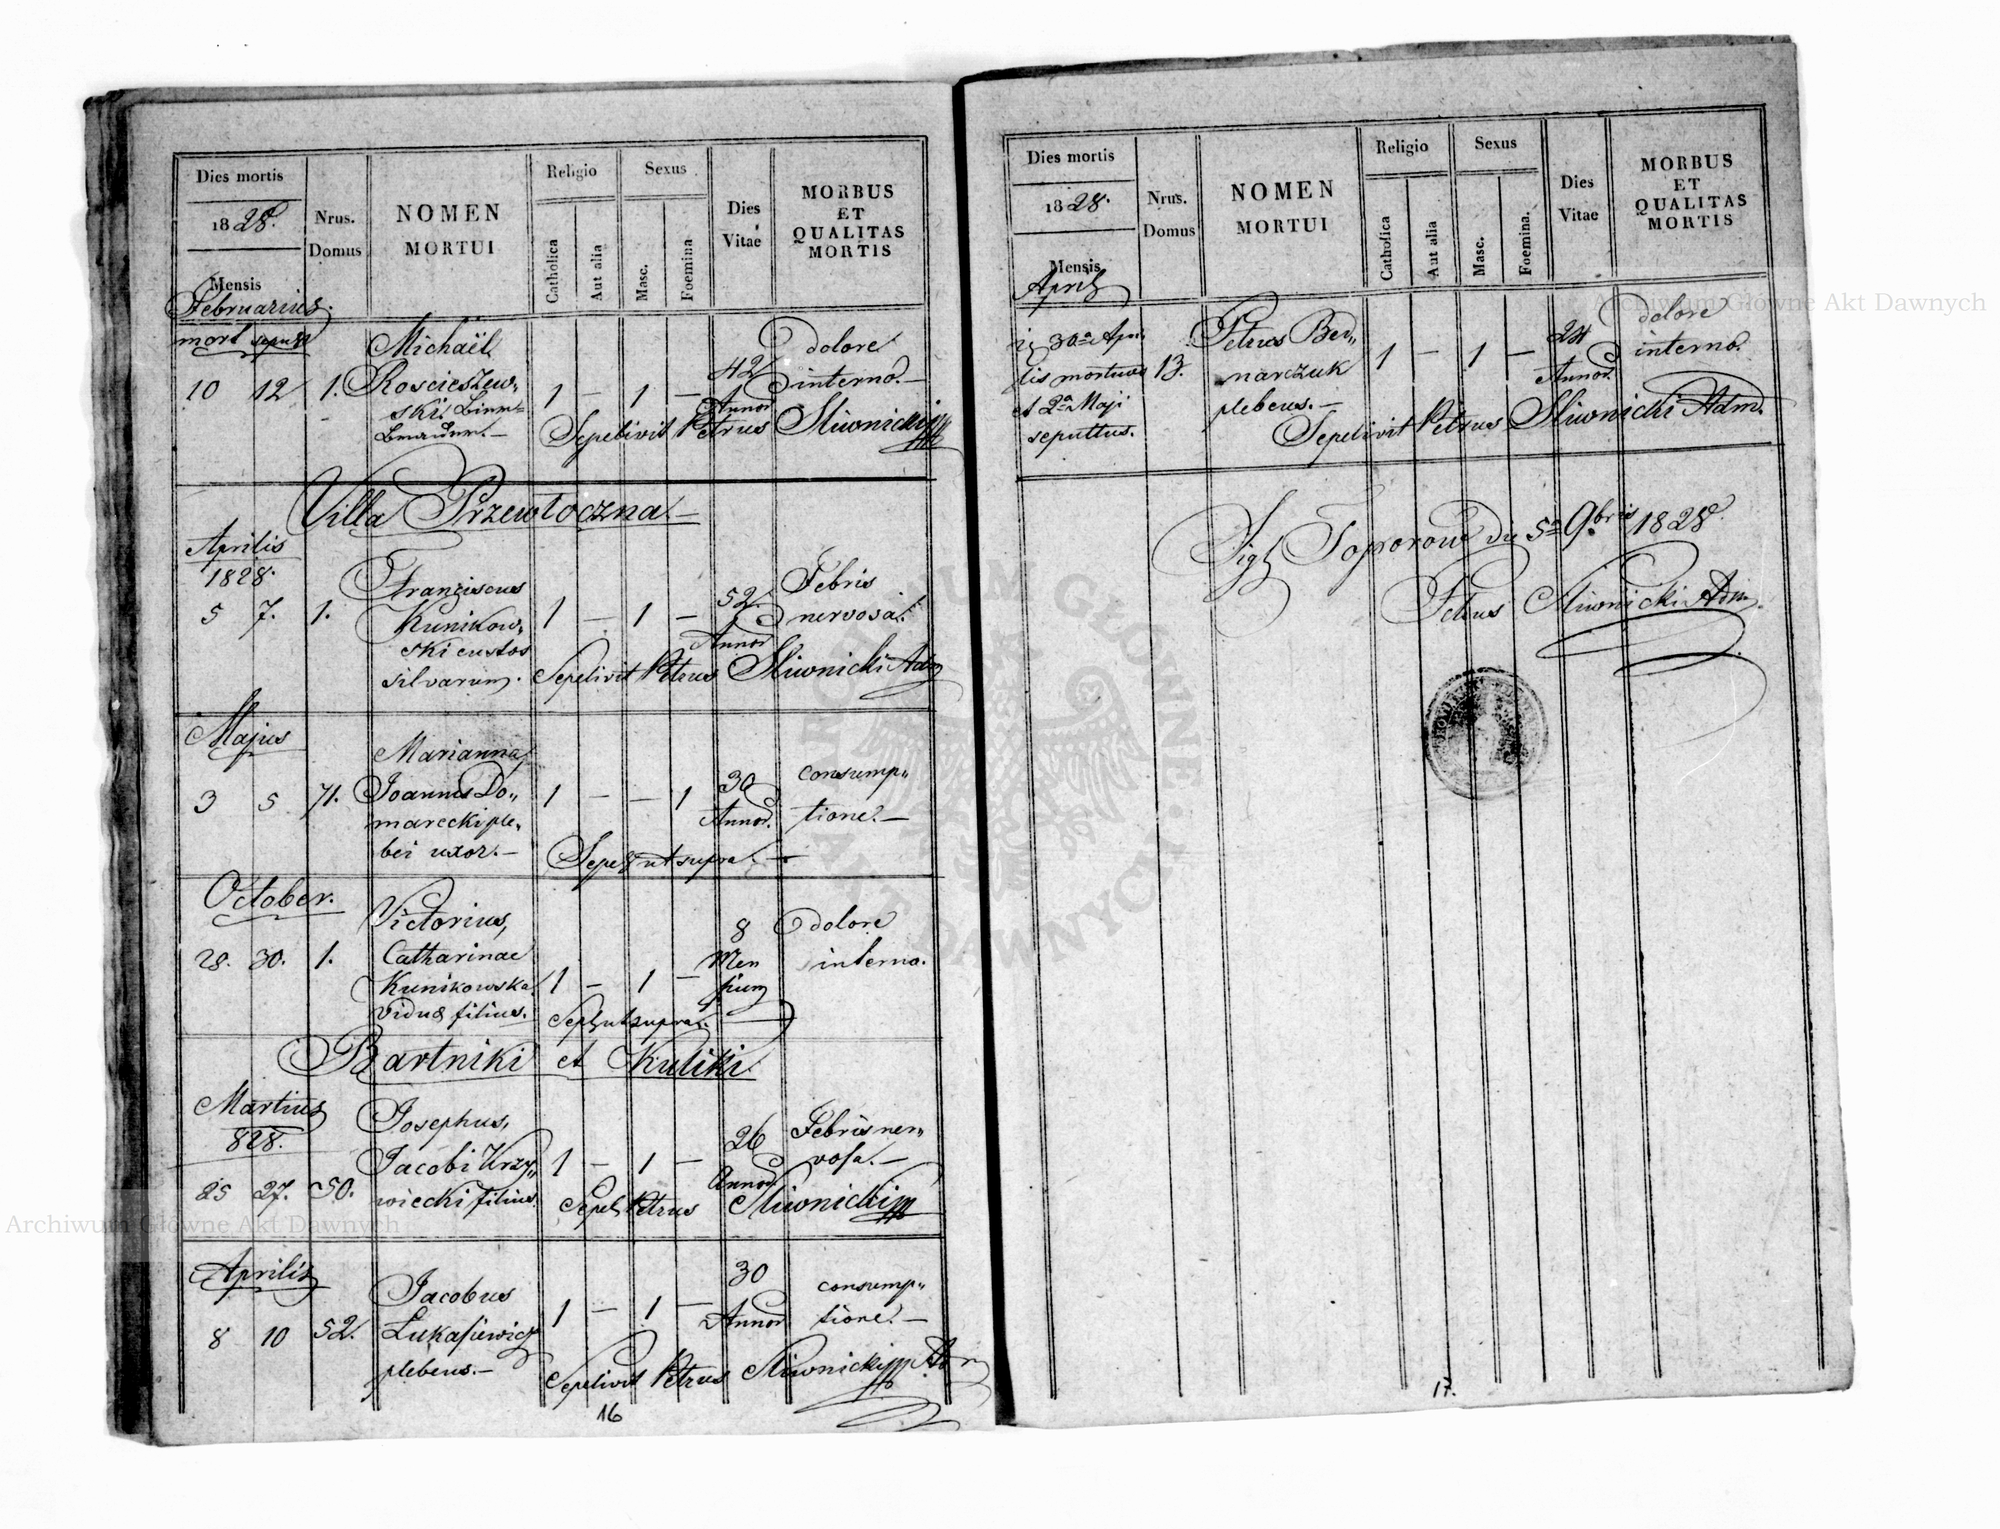 Dies mortis
1828.
Mensis
Februarius.
Nrus.
Domus
NOMEN
MORTUI
Religio
Catholica
Aut alia
Sexus
Masc.
Foemina
Dies
Vitae
MORBUS
ET
QUALITAS
MORTIS
mort sepult
10 12 1.
Michaël
Roscieszew„
ski
1 – 1 –
42
Annor
dolore
interno.–
Sepelivit Petrus Sliwnicki
Villa Przewloczna.–
Aprilis
1828.
5 7. 1.
Franciscus
Kunikow„
ski custos
silvarum.
1 – 1 –
52.
Annor
Febris
nervosa.
Sepelivit Petrus Sliwnicki Adm
Majus
3 5 71.
Marianna,
Joannis Do„
marecki ple„
bei uxor.–
1 – – 1
30
Annor.
consump„
tione.–
Sepel ut supra.–
October.
28. 30. 1.
Victorius,
Catharinae
Kunikowska
viduae filius.
1 – 1 –
8
Men
sium
dolore
interno.
Sepl ut supra.
Bartniki et Kuliki.
Martius
828.
25 27. 50.
Josephus,
Jacobi Krzy„
wiecki filius.
1 – 1 –
26
Annor
Febris ner„
vosa.–
Sepel Petrus Sliwnicki
Aprilis
8 10 52.
Jacobus
Lukasiewicz
plebeus.–
1 – 1 –
30
Annor
consump„
tione.–
Sepelivit Petrus Sliwnicki Adm
16
Dies mortis
1828.
Mensis
April
Nrus.
Domus
NOMEN
MORTUI
Religio
Catholica
Aut alia
Sexus
Masc.
Foemina.
Dies
Vitae
MORBUS
ET
QUALITAS
MORTIS
30a Apri„
lis mortuus
et 2a Maji
sepultus.
13.
Petrus Ber„
narczuk
plebeus.–
1 – 1 –
24
Annor.
dolore
interno.
Sepelivit Petrus Sliwnicki Adm.
Sigl Toporow die 5a 9bris 1828.
Petrus Sliwnicki Adm.
17.
Archiwum Główne Akt Dawnych
Archiwum Główne Akt Dawnych
ARCHIWUM GŁÓWNE · AKT DAWNYCH ·